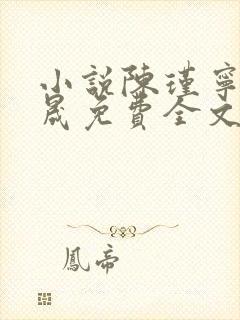 小說陳瑾寧
晟免費全文
鳳帝